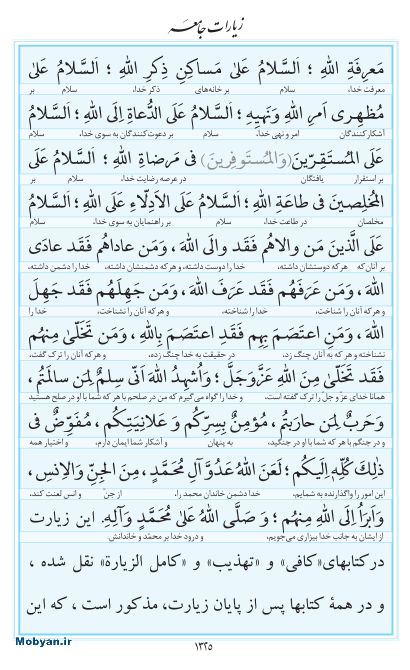 زیارات جامعه
مَعرِفَةِ اللهِ ؛ اَلسَّلامُ عَلیٰ مَساکِنِ ذِکرِ اللهِ ؛ اَلسَّلامُ عَلیٰ
معرفت خدا، سلام بر خانه‌های ذکر خدا، سلام بر
مُظهِری اَمرِ اللهِ وَنَهیِهِ ؛ اَلسَّلامُ عَلَی الدُّعاةِ اِلَی اللهِ ؛ اَلسَّلامُ
آشکارکنندگان امر و نهی خدا، سلام بر دعوت‌کنندگان به سوی خدا، سلام
عَلَی المُستَقِرّینَ(وَالمُستَوفِرینَ) فی مَرضاةِ اللهِ ؛ اَلسَّلامُ عَلَی
بر استقرار یافتگان در عرصه رضایت خدا، سلام بر
المُخلِصینَ فی طاعَةِ اللهِ ؛ اَلسَّلامُ عَلَی الاَدِلّاءِ عَلَی اللهِ ؛ اَلسَّلامُ
مخلصان در طاعت خدا، سلام بر راهنمایان به سوی خدا، سلام
عَلَی الَّذینَ مَن والاهُم فَقَد والَی اللهَ ، وَمَن عاداهُم فَقَد عادَی
بر آنان که هرکه دوستشان داشته، خدا را دوست داشته، و هرکه دشمنشان داشته، خدا را دشمن داشته،
اللهَ ، وَمَن عَرَفَهُم فَقَد عَرَفَ اللهَ ، وَمَن جَهِلَهُم فَقَد جَهِلَ
و هرکه آنان را شناخت، خدا را شناخته، و هرکه آنان را نشناخت، خدا را
اللهَ ، وَمَنِ اعتَصَمَ بِهِم فَقَدِ اعتَصَمَ بِاللهِ ، وَمَن تَخَلّیٰ مِنهُم
نشناخته و هرکه به آنان چنگ زد، در حقیقت به خدا چنگ زده، و هرکه آنان را ترک گفت،
فَقَد تَخَلّیٰ مِنَ اللهِ عَزَّوَجَلَّ ؛ وَاُشهِدُ اللهَ اَنّی سِلمٌ لِمَن سالَمتُم ،
همانا خدای عزّ و جلّ را ترک گفته است، و خدا را گواه می‌گیرم که من در صلحم با هرکه شما با او در صلح هستید
وَحَربٌ لِمَن حارَبتُم ، مُؤمِنٌ بِسِرِّکُم وَ عَلانِیَتِکُم ، مُفَوِّضٌ فی
و در جنگم با هرکه شما با او در جنگید، به پنهان و آشکار شما ایمان دارم، و اختیار همه
ذٰلِکَ کُلِّهِ اِلَیکُم ؛ لَعَنَ اللهُ عَدُوَّ آلِ مُحَمَّدٍ ، مِنَ الجِنِّ وَالاِنسِ ،
این امور را واگذارنده به شمایم، خدا دشمن خاندان محمد را، از جنّ و انس لعنت کند،
وَاَبرَأُ اِلَی اللهِ مِنهُم ؛ وَ صَلَّی اللهُ عَلیٰ مُحَمَّدٍ وَآلِهِ. این زیارت
از ایشان به جانب خدا بیزاری می‌جویم، و درود خدا بر محمّد و خاندانش.
درکتابهای«کافی» و «تهذیب» و «کامل الزیارة» نقل شده ،
و در همهٔ کتابها پس از پایان زیارت، مذکور است ، که این
Mobyan.ir
۱۳۲۵